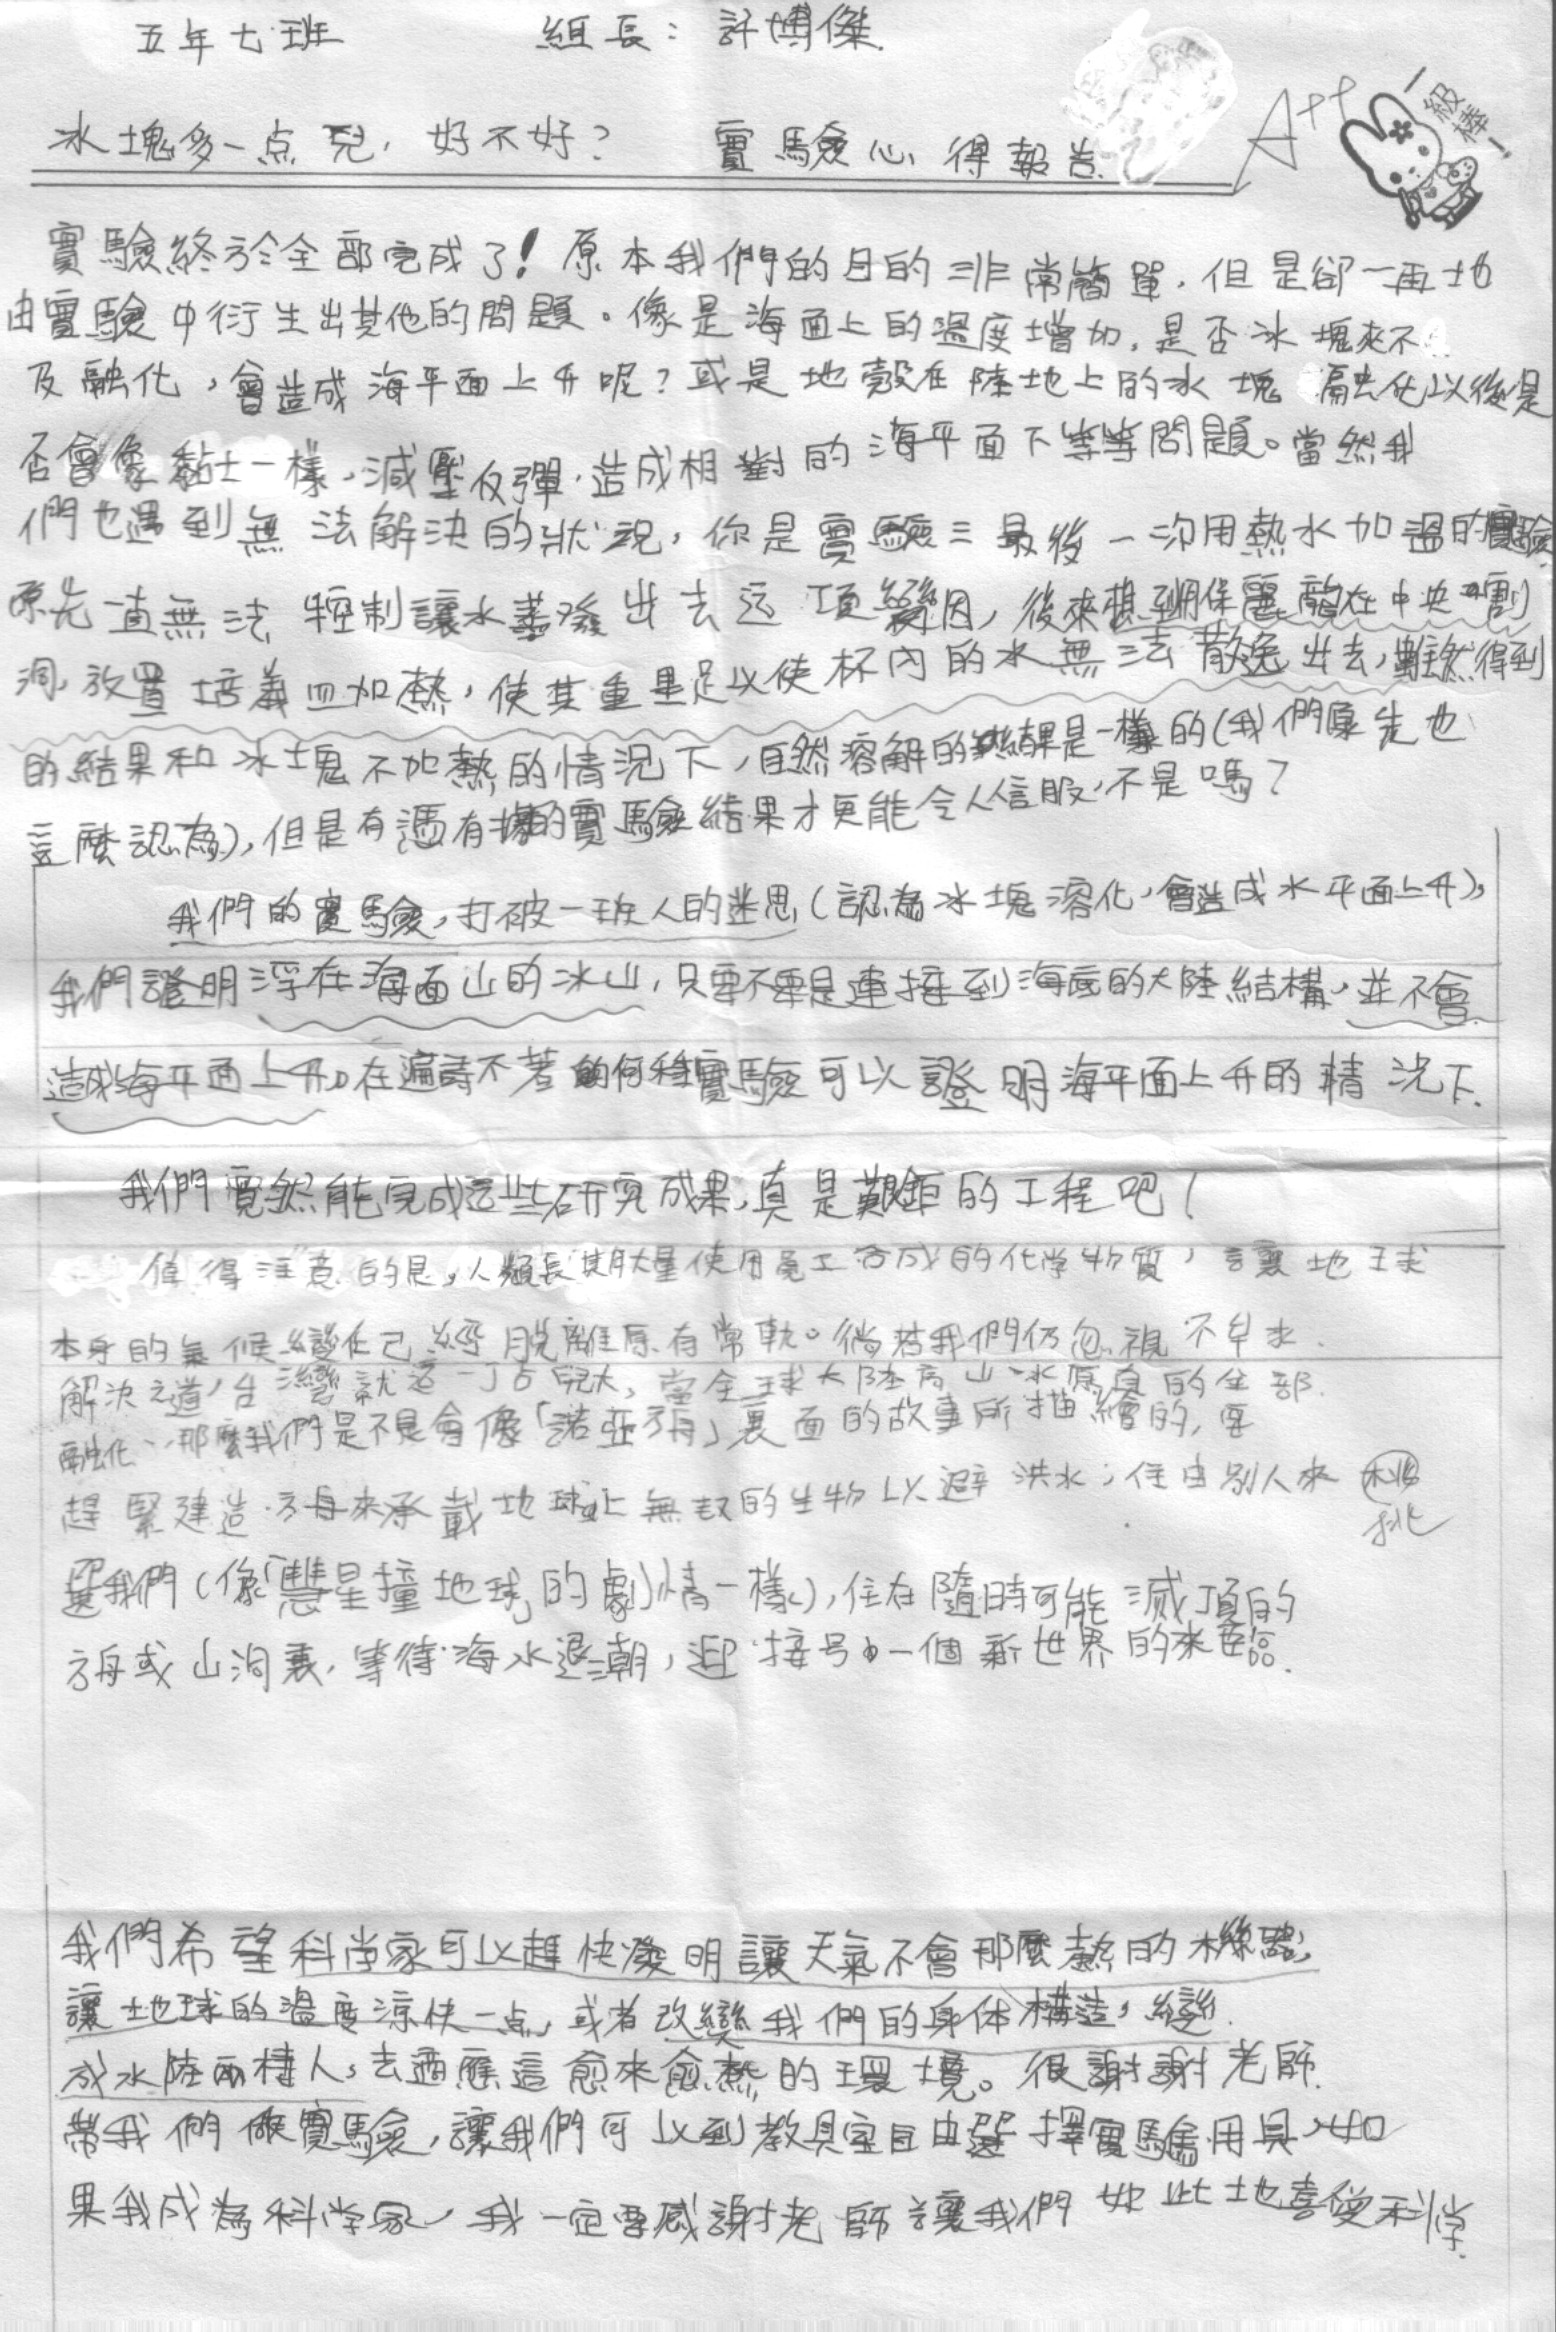 五年七班 組長：許博傑
冰塊多一点兒，好不好？ 實驗心得報告
A++
一級棒！
實驗終於全部完成了！原本我們的目的非常簡單，但是卻一再地
由實驗中衍生出其他的問題。像是海面上的溫度增加，是否冰塊來不
及融化，會造成海平面上升呢？或是地殼在陸地上的冰塊融化以後是
否會像黏土一樣，減壓反彈，造成相對的海平面下等等問題。當然我
們也遇到無法解決的狀況，你是實驗三最後一次用熱水加溫的實驗
原先一直無法控制讓水蒸發出去這項變因，後來想到用保麗龍在中央割
洞，放置培養皿加熱，使其重量足以使杯內的水無法散逸出去，雖然得到
的結果和冰塊不加熱的情況下，自然溶解的結果是一樣的（我們原先也
這麼認為），但是有憑有據的實驗結果才更能令人信服，不是嗎？
我們的實驗，打破一班人的迷思（認為冰塊溶化，會造成水平面上升），
我們證明浮在海面山的冰山，只要不要是連接到海底的大陸結構，並不會
造成海平面上升。在遍尋不著何種實驗可以證明海平面上升的情況下，
我們竟然能完成這些研究成果，真是艱鉅的工程吧！
值得注意的是，人類長期大量使用人工合成的化学物質，讓地球
本身的氣候變化已經脫離原有常軌。徜若我們仍忽視不早求
解決之道，台灣就這一丁点兒大，當全球大陸高山冰原真的全部
融化，那麼我們是不是會像「諾亞方舟」裏面的故事所描繪的，要
趕緊建造方舟來承載地球上無奴的生物以避洪水；任由別人來桃
挑
選我們（像「慧星撞地球」的劇情一樣），住在隨時可能滅頂的
方舟或山洞裏，等待海水退潮，迎接另一個新世界的來臨。
我們希望科学家可以趕快發明讓天氣不會那麼熱的機器，
讓地球的溫度涼快一点，或者改變我們的身体構造，變
成水陸兩棲人，去適應這愈來愈熱的環境。很謝謝老師
帶我們做實驗，讓我們可以到教具室自由選擇實驗用具，如
果我成為科学家，我一定要感謝老師讓我們如此地喜愛科学。